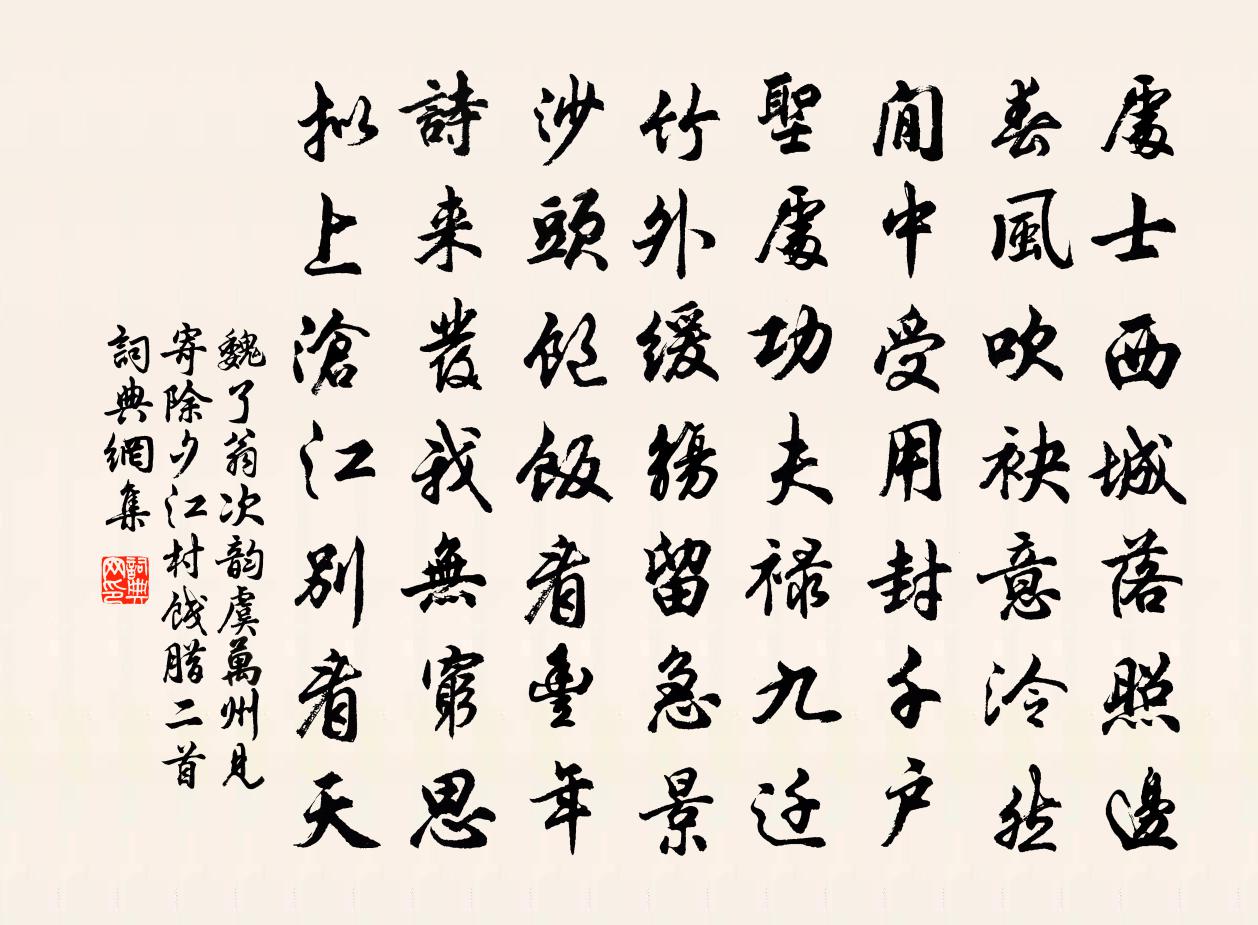 處士西城落照邊
春風吹袂意泠然
閒中受用封千户
聖處功夫禄九迁
竹外緩觴留急景
沙頭飽飯看豊年
詩来發我無窮思
拟上滄江别看天
魏了翁次韵虞萬州見
寄除夕江村饯腊二首
詞典網集
詞典
网印